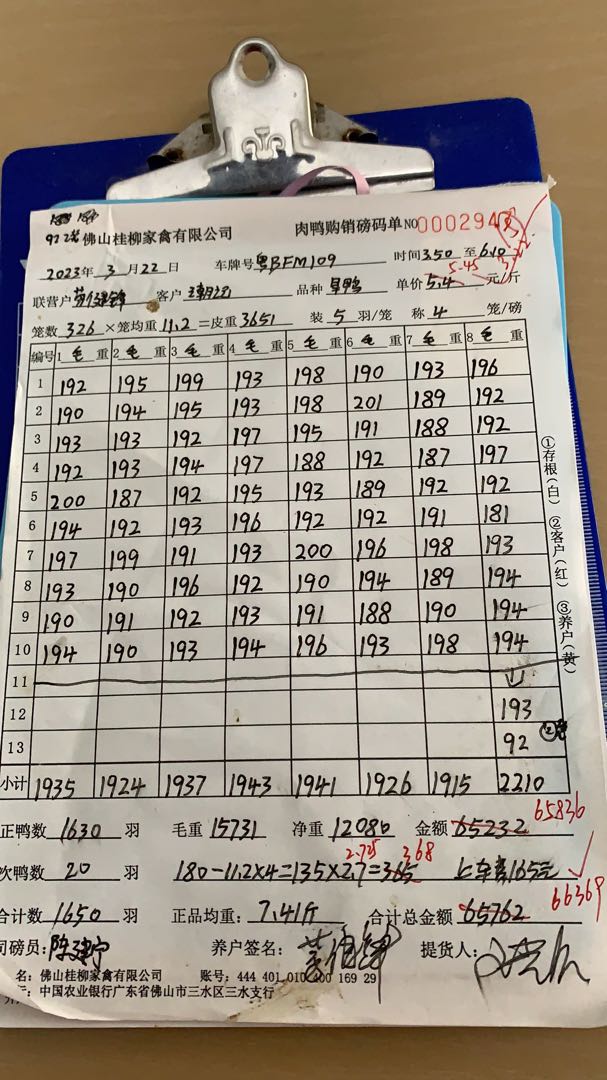 佛山桂柳家禽有限公司 肉鸭购销磅码单 NO 000294
2023年 3月 22日 车牌号 粤BFM109 时间 350 至 610
联营户 客户 品种 旱鸭 单价 5.4 5.45 元/斤
笼数 326 ×笼均重 11.2 =皮重 3651 装 5 羽/笼 称 4 笼/磅
编号 1 毛 重 2 毛 重 3 毛 重 4 毛 重 5 毛 重 6 毛 重 7 毛 重 8 毛 重
1 192 195 199 193 198 190 193 196
2 190 194 195 193 198 201 189 192
3 193 193 192 197 195 191 188 192
4 192 193 194 197 188 192 187 197
5 200 187 192 195 193 189 192 192
6 194 192 193 196 192 192 191 181
7 197 199 191 193 200 196 198 193
8 193 190 196 192 190 194 189 194
9 190 191 192 193 191 188 190 194
10 194 190 193 194 196 193 198 194
11
12 193
13 92
小计 1935 1924 1937 1943 1941 1926 1915 2210
①存根(白) ②客户(红) ③养户(黄)
正鸭数 1630 羽 毛重 15731 净重 12080 金额 65232 65836
次鸭数 20 羽 180-11.2×4=135×2.7=365 2.725 368 上车费165元
合计数 1650 羽 正品均重: 7.41斤 合计总金额 65762 66369
司磅员: 陈建宁 养户签名: 提货人:
名: 佛山桂柳家禽有限公司 账号: 444 401 010 400 169 29
行: 中国农业银行广东省佛山市三水区三水支行